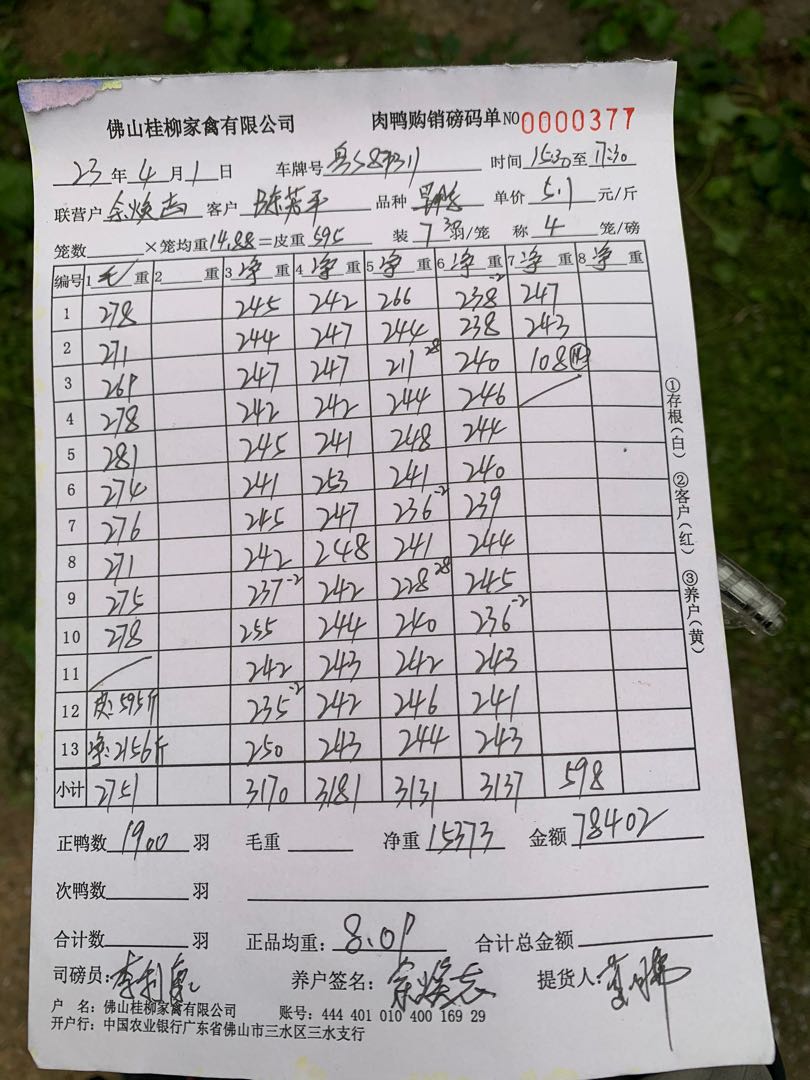 佛山桂柳家禽有限公司 肉鸭购销磅码单 NO 0000377
23 年 4 月 1 日 车牌号 时间 15:30 至 17:30
联营户 余焕志 客户 陈芳平 品种 单价 5.1 元/斤
笼数 ×笼均重 14.88 =皮重 595 装 7 30 羽/笼 称 4 笼/磅
编号 1 毛 重 2 重 3 净 重 4 净 重 5 净 重 6 净 重 7 净 重 8 净 重
1 278 245 242 266 238-2 247
2 271 244 247 244 238 243
3 269 247 247 211 28 240 108
4 278 242 242 244 246
5 281 245 241 248 244
6 274 241 253 241 240
7 276 245 247 236-2 239
8 271 242 248 241 244
9 275 237-2 242 228 28 245
10 278 255 244 240 236-2
11 242 243 242 243
12 皮:595斤 235-2 242 246 241
13 净:2156斤 250 243 244 243
小计 2751 3170 3181 3131 3137 598
正鸭数 1900 羽 毛重 净重 15373 金额 78402
次鸭数 羽
合计数 羽 正品均重: 8.09 合计总金额
司磅员: 养户签名: 余焕志 提货人:
户 名: 佛山桂柳家禽有限公司 账号: 444 401 010 400 169 29
开户行: 中国农业银行广东省佛山市三水区三水支行
①存根(白) ②客户(红) ③养户(黄)